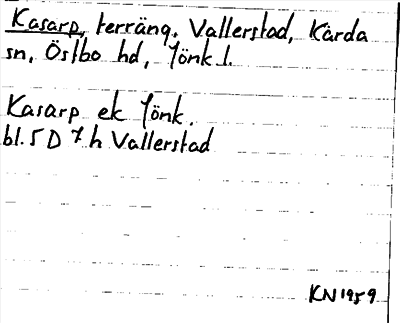 Kasarp, terräng. Vallerstad, Kärda
sn, Östbo hd, Jönk l.
Kasarp ek Jönk.
bl. 5 D 7 h Vallerstad
KN 1959